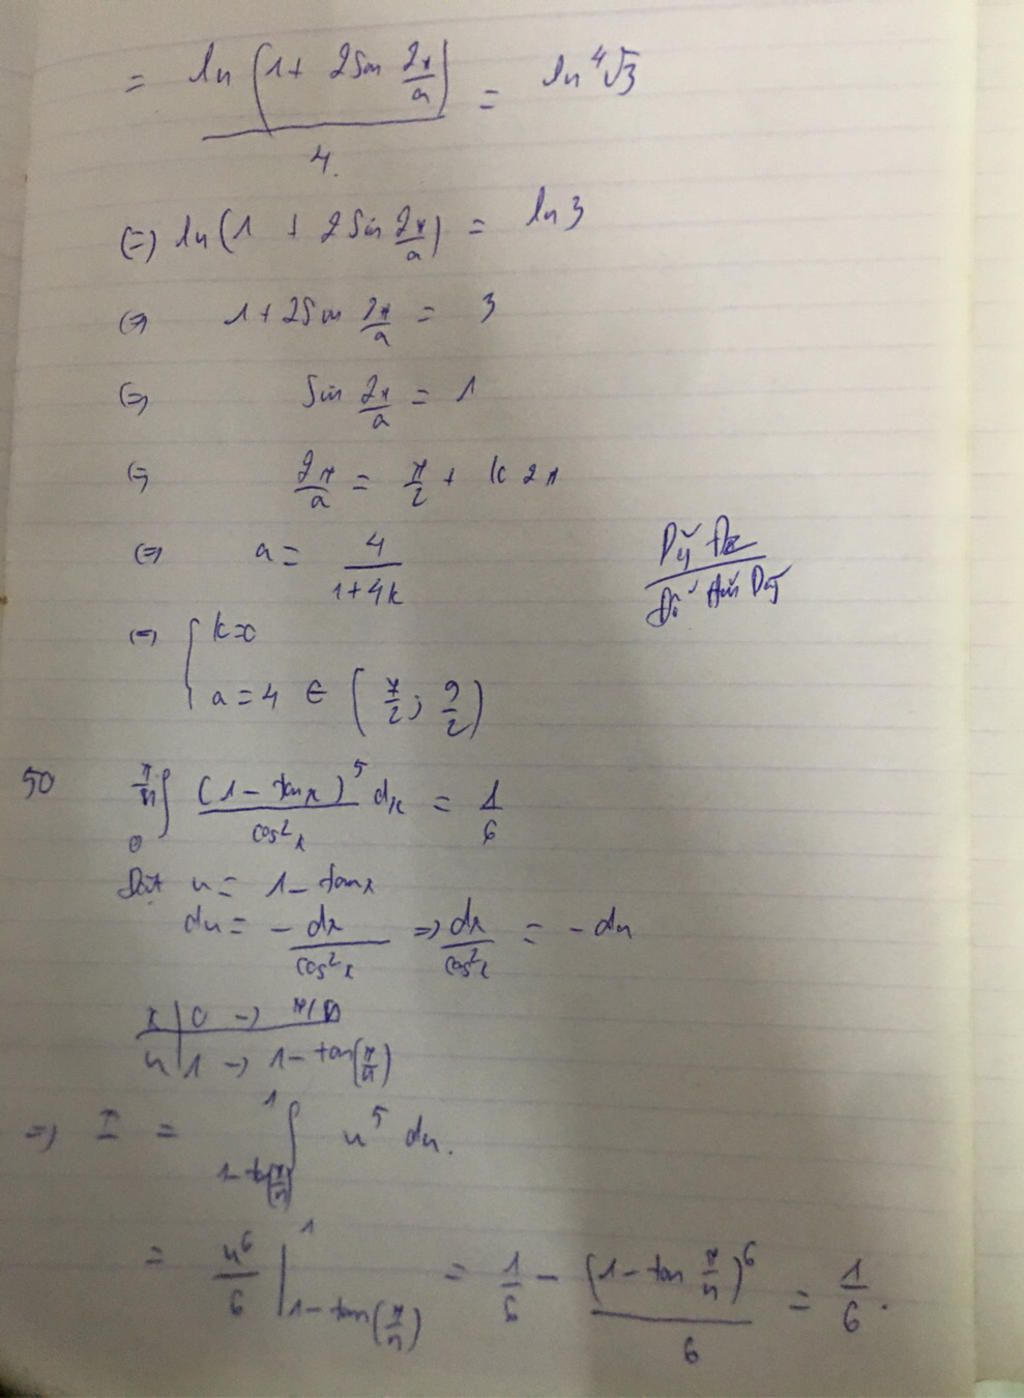 = ln(1 + 2sin 2π/a) / 4. = ln ⁴√3
(=) ln(1 + 2sin 2π/a) = ln3
(=) 1 + 2sin 2π/a = 3
(=) sin 2π/a = 1
(=) 2π/a = π/2 + k2π
(=) a = 4/(1+4k)
(=) { k=0
a = 4 ∈ (7/2; 9/2)
50 ∫₀^(π/n) (1 - tanx)⁵/cos²x dx = 1/6
Đặt u = 1 - tanx
du = - dx/cos²x => dx/cos²x = - du
x | 0 -> π/n
u | 1 -> 1 - tan(π/n)
=> I = ∫_(1-tan(π/n))^1 u⁵ du.
= u⁶/6 |_(1-tan(π/n))^1 = 1/6 - (1 - tan π/n)⁶/6 = 1/6.